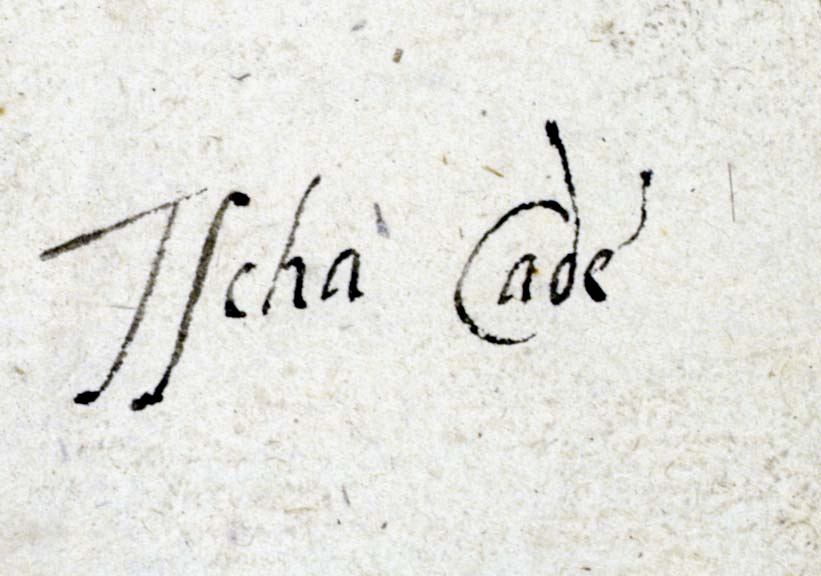 Jscha Cade